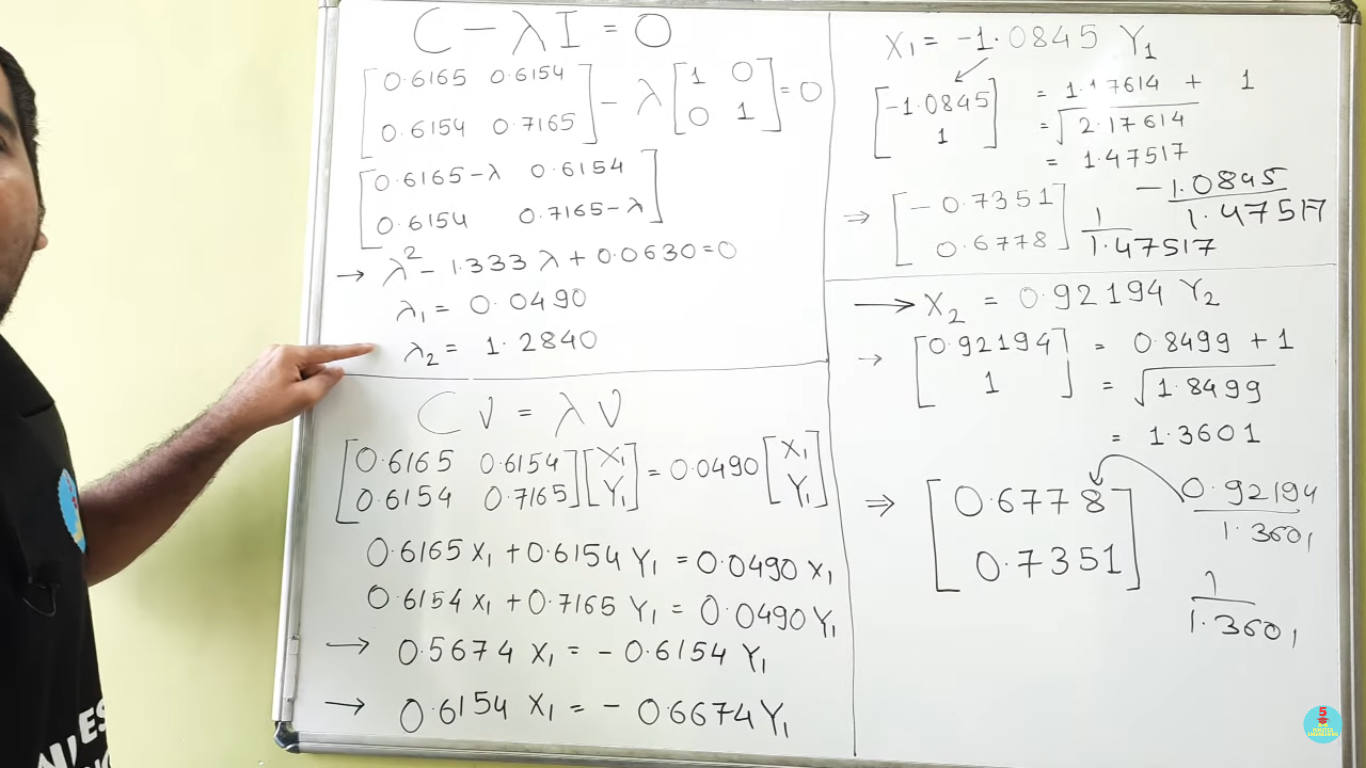 C - λI = 0
[0.6165 0.6154
0.6154 0.7165] - λ [1 0
0 1] = 0
[0.6165-λ 0.6154
0.6154 0.7165-λ]
→ λ² - 1.333 λ + 0.0630 = 0
λ₁ = 0.0490
λ₂ = 1.2840
C V = λ V
[0.6165 0.6154
0.6154 0.7165] [X₁
Y₁] = 0.0490 [X₁
Y₁]
0.6165 X₁ + 0.6154 Y₁ = 0.0490 X₁
0.6154 X₁ + 0.7165 Y₁ = 0.0490 Y₁
→ 0.5674 X₁ = - 0.6154 Y₁
→ 0.6154 X₁ = - 0.6674 Y₁
X₁ = -1.0845 Y₁
[-1.0845
1]
= 1.17614 + 1
= √2.17614
= 1.47517
⇒ [-0.7351
0.6778]
-1.0845
1.47517
1
1.47517
→ X₂ = 0.92194 Y₂
→ [0.92194
1]
= 0.8499 + 1
= √1.8499
= 1.3601
⇒ [0.6778
0.7351]
0.92194
1.3601
1
1.3601
5